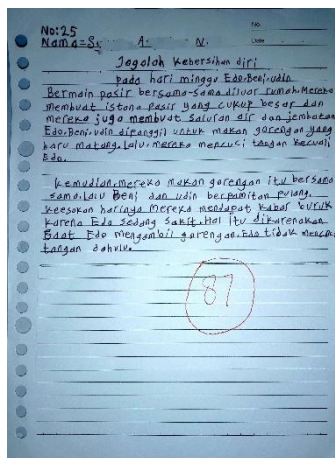 No:25
Nama=S A. N.
No.
Date
Jagalah Kebersihan diri
Pada hari minggu Edo.Beni.udin
Bermain pasir bersama-sama diluar rumah.Mereka
membuat istana pasir yang cukup besar dan
mereka juga membuat saluran air dan jembatan
Edo.Beni.udin dipanggil untuk makan gorengan yang
baru matang.Lalu.mereka mencuci tangan kecuali
Edo.
Kemudian.mereka makan gorengan itu bersama
sama.Lalu Beni dan udin berpamitan pulang.
keesokan harinya Mereka mendapat kabar buruk
karena Edo sedang sakit.Hal itu dikarenakan
Saat Edo mengambil gorengan.Edo tidak mencuci
tangan dahulu.
87